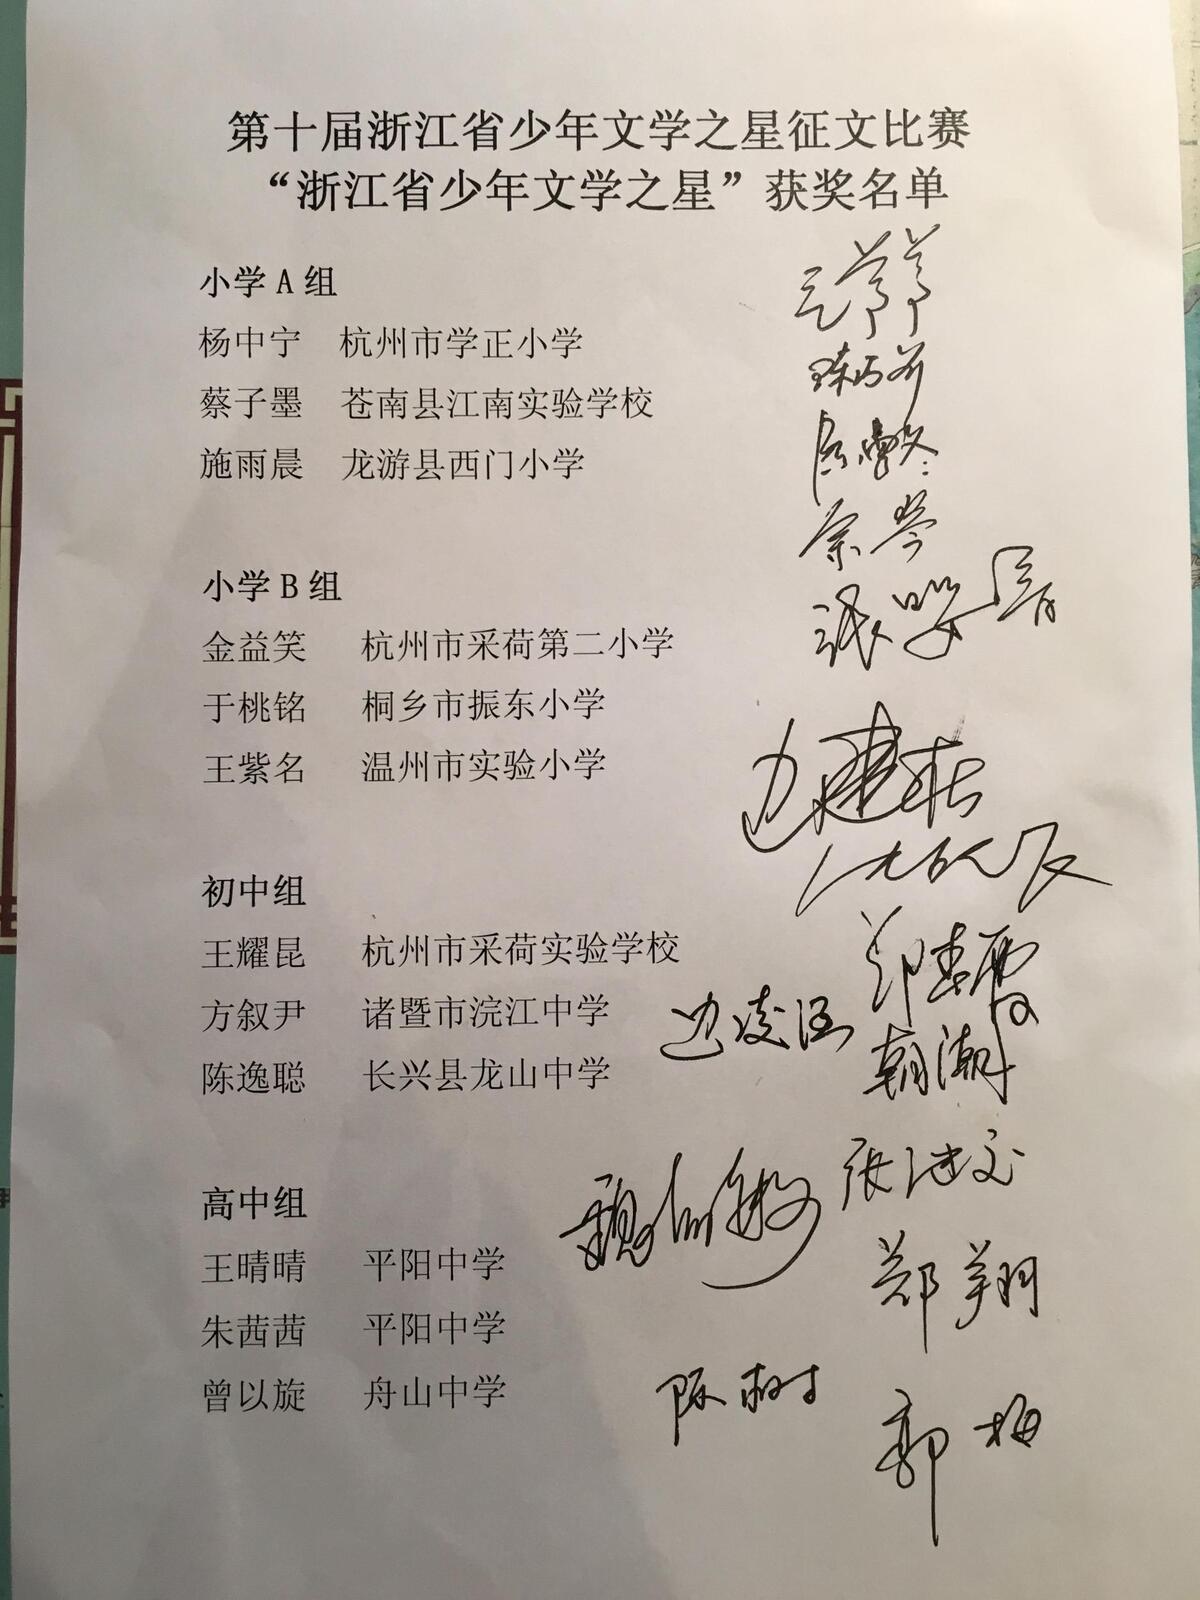 第十届浙江省少年文学之星征文比赛
“浙江省少年文学之星”获奖名单
小学 A 组
杨中宁 杭州市学正小学
蔡子墨 苍南县江南实验学校
施雨晨 龙游县西门小学
小学 B 组
金益笑 杭州市采荷第二小学
于桃铭 桐乡市振东小学
王紫名 温州市实验小学
初中组
王耀昆 杭州市采荷实验学校
方叙尹 诸暨市浣江中学
陈逸聪 长兴县龙山中学
高中组
王晴晴 平阳中学
朱茜茜 平阳中学
曾以旋 舟山中学
边建松
郑春霞
边凌涵
朝潮
郑翔
陈树
郭梅